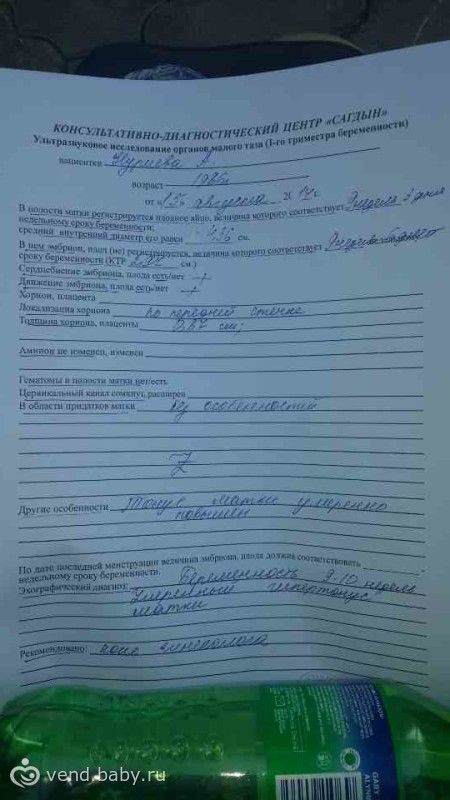 КОНСУЛЬТАТИВНО-ДИАГНОСТИЧЕСКИЙ ЦЕНТР «САГДЫН»
Ультразвуковое исследование органов малого таза (1-го триместра беременности)
пациентки Нуриева А.
возраст 1986г
от «15» августа 2014г.
В полости матки регистрируется плодное яйцо, величина которого соответствует 9 недель 3 дня
недельному сроку беременности,
средний внутренний диаметр его равен см.
В нем эмбрион, плод (не) регистрируется, величина которого соответствует
сроку беременности (КТР см.)
Сердцебиение эмбриона, плода есть/нет +
Движение эмбриона, плода есть/нет +
Хорион, плацента
Локализация хориона по передней стенке
Толщина хориона, плаценты 0,87 см;
Амнион не изменен, изменен
Гематомы в полости матки нет/есть
Цервикальный канал сомкнут, расширен
В области придатков матки без особенностей
Z
Другие особенности Тонус матки умеренно
повышен
По дате последней менструации величина эмбриона, плода должна соответствовать
недельному сроку беременности.
Эхографический диагноз: Беременность 9-10 недель
Умеренный гипертонус
матки
Рекомендовано: конс гинеколога
GABY
ALYNG
vend.baby.ru